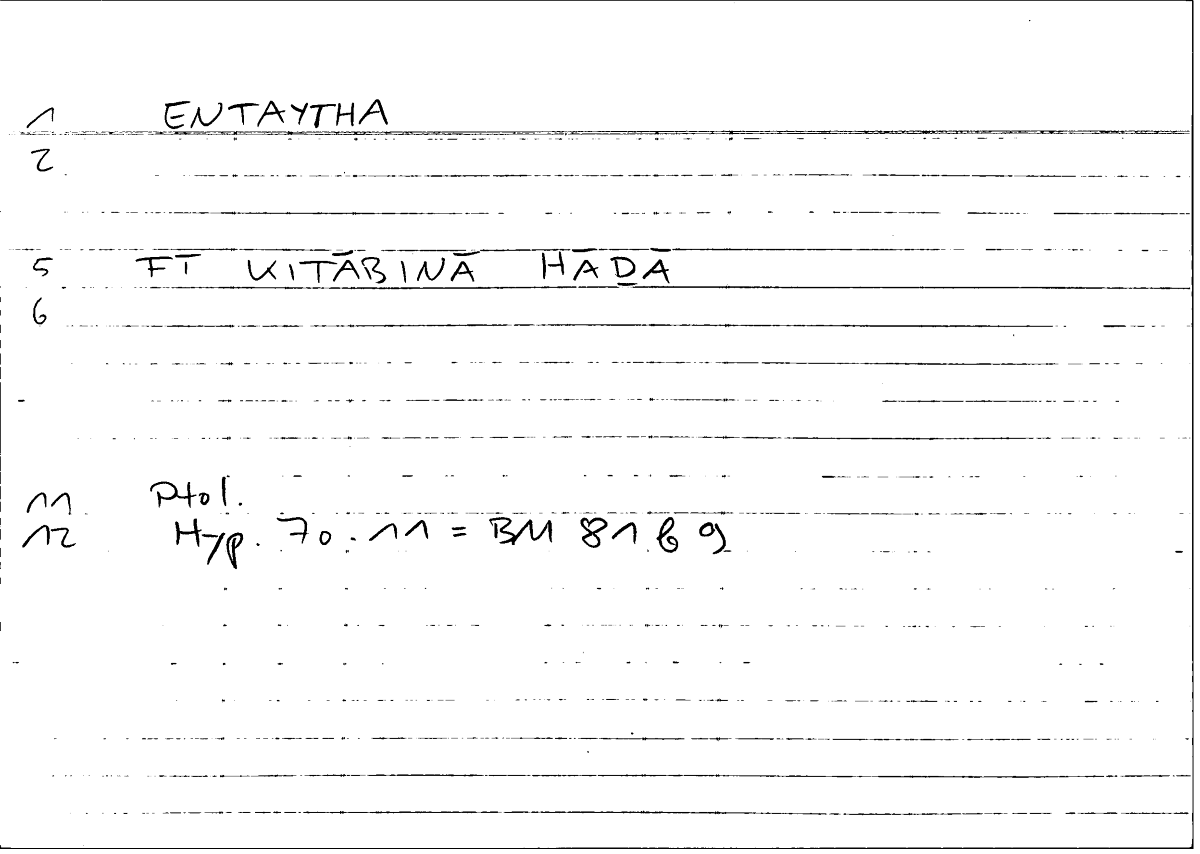 1 ENTAYTHA
2
5 FĪ KITĀBINĀ HĀḎĀ
6
11 Ptol.
12 Hyp. 70.11 = BM 81 b 9